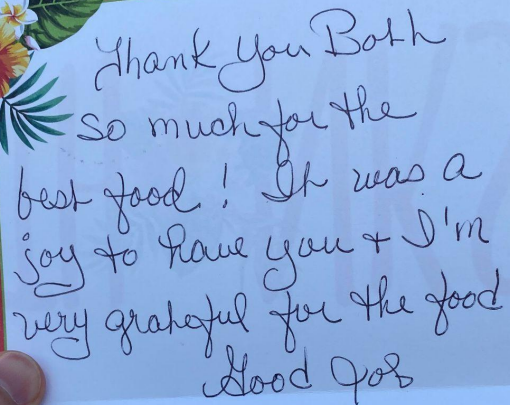 Thank You Both
so much for the
best food! It was a
joy to have you + I'm
very grateful for the food
Good Job